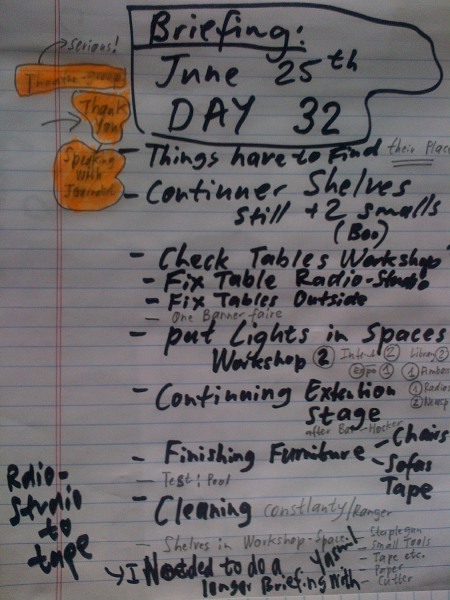 Briefing:
June 25th
DAY 32
Serious!
Thank
You
Speaking
with
Journalist
- Things have to Find their Place
- Continuer Shelves
still + 2 smalls
(Boo)
- Check Tables Workshop
- Fix Table Radio-Studio
- Fix Tables Outside
- One Banner faire
- put Lights in Spaces
Workshop 2 Intent 2 Library 2
Expo 1 1 Ambas
1 Radio
2 Newsp
- Continning Extention
Stage
after Bar-Hocker
- Finishing Furniture - Chairs
- Sofas
Tape
- Test! Pool
- Cleaning constlanty/Ranger
- Shelves in Workshop-Space!
- Staplegun
- Small Tools
- Tape etc.
- Paper
- Cutter
I Needed to do a
longer Briefing with
Rdio-
Studio
to
tape